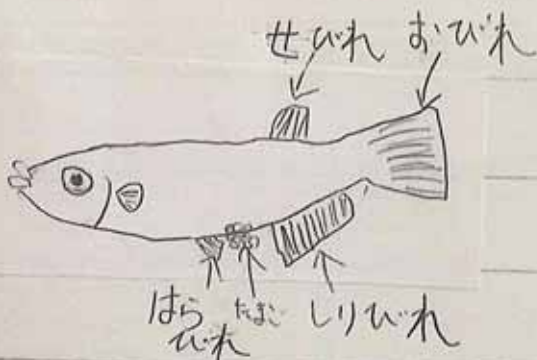 せびれ おびれ
はら
びれ
たまご
しりびれ